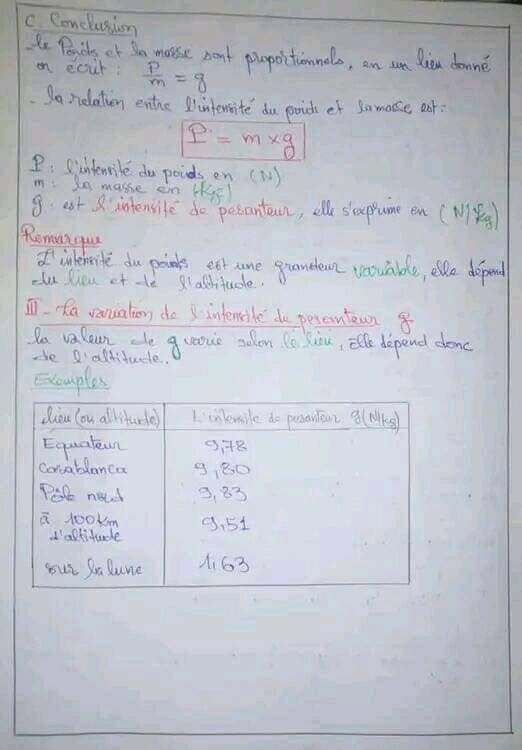 C. Conclusion
-le Poids et la masse sont proportionnels, en un lieu donné
on écrit : P/m = g
- la relation entre l'intensité du poids et la masse est :
P = m x g
P : l'intensité du poids en (N)
m : la masse en (Kg)
g : est l'intensité de pesanteur, elle s'exprime en (N/Kg)
Remarque
L'intensité du poids est une grandeur variable, elle dépend
du lieu et de l'altitude.
III - La variation de l'intensité de pesanteur g
la valeur de g varie selon le lieu, Elle dépend donc
de l'altitude.
Exemples
lieu (ou altitude) L'intensité de pesanteur g(N/Kg)
Equateur 9,78
Casablanca 9,80
Pôle nord 9,83
à 100km 9,51
d'altitude
sur la lune 1,63